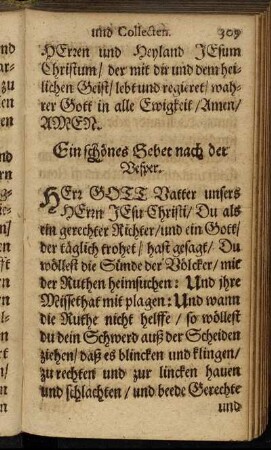 und Collecten. 309
HErren und Heyland JEsum
Christum / der mit dir und dem hei-
lichen Geist / lebt und regieret / wah-
rer Gott in alle Ewigkeit / Amen /
AMEN.
Ein schönes Gebet nach der
Vesper.
HErr GOTT Vatter unsers
HErrn JEsu Christi / Du als
ein gerechter Richter / und ein Gott /
der täglich trohet / hast gesagt / Du
wöllest die Sünde der Völcker / mit
der Ruthen heimsuchen: Und jhre
Missethat mit plagen: Und wann
die Ruthe nicht helffe / so wöllest
du dein Schwerd auß der Scheiden
ziehen / daß es blincken und klingen /
zu rechten und zur lincken hauen
und schlachten / und beede Gerechte
und